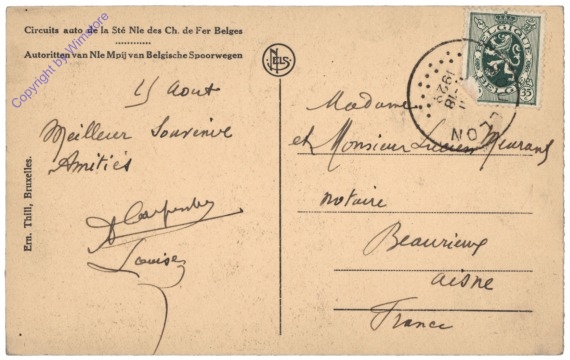 Circuits auto de la Sté Nle des Ch. de Fer Belges
Autoritten van Nle Mpij van Belgische Spoorwegen
NELS
Copyright by Wimstore
15 Aout
Meilleur Souvenir
Amitiés
Louise
Ern. Thill, Bruxelles.
BELGIË
35
1929
Madame
et Monsieur Lucien Meurant
notaire
Beaurieux
aisne
France